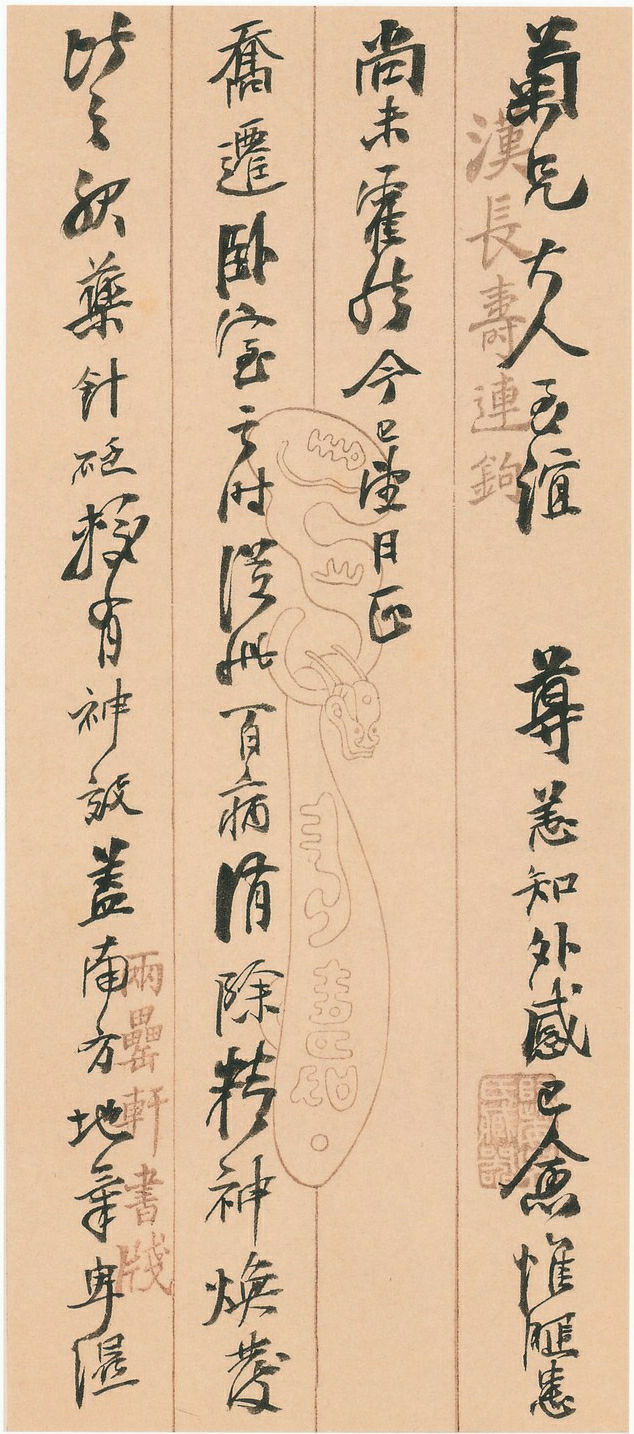 菊兄大人至誼　尊恙知外感已愈惟腿患
尚未霍然今已望日正
喬遷臥室之时從此百病消除精神煥發
比之服藥針砭較有神效蓋南方地氣卑濕
漢長壽連鉤
兩罍軒書牋